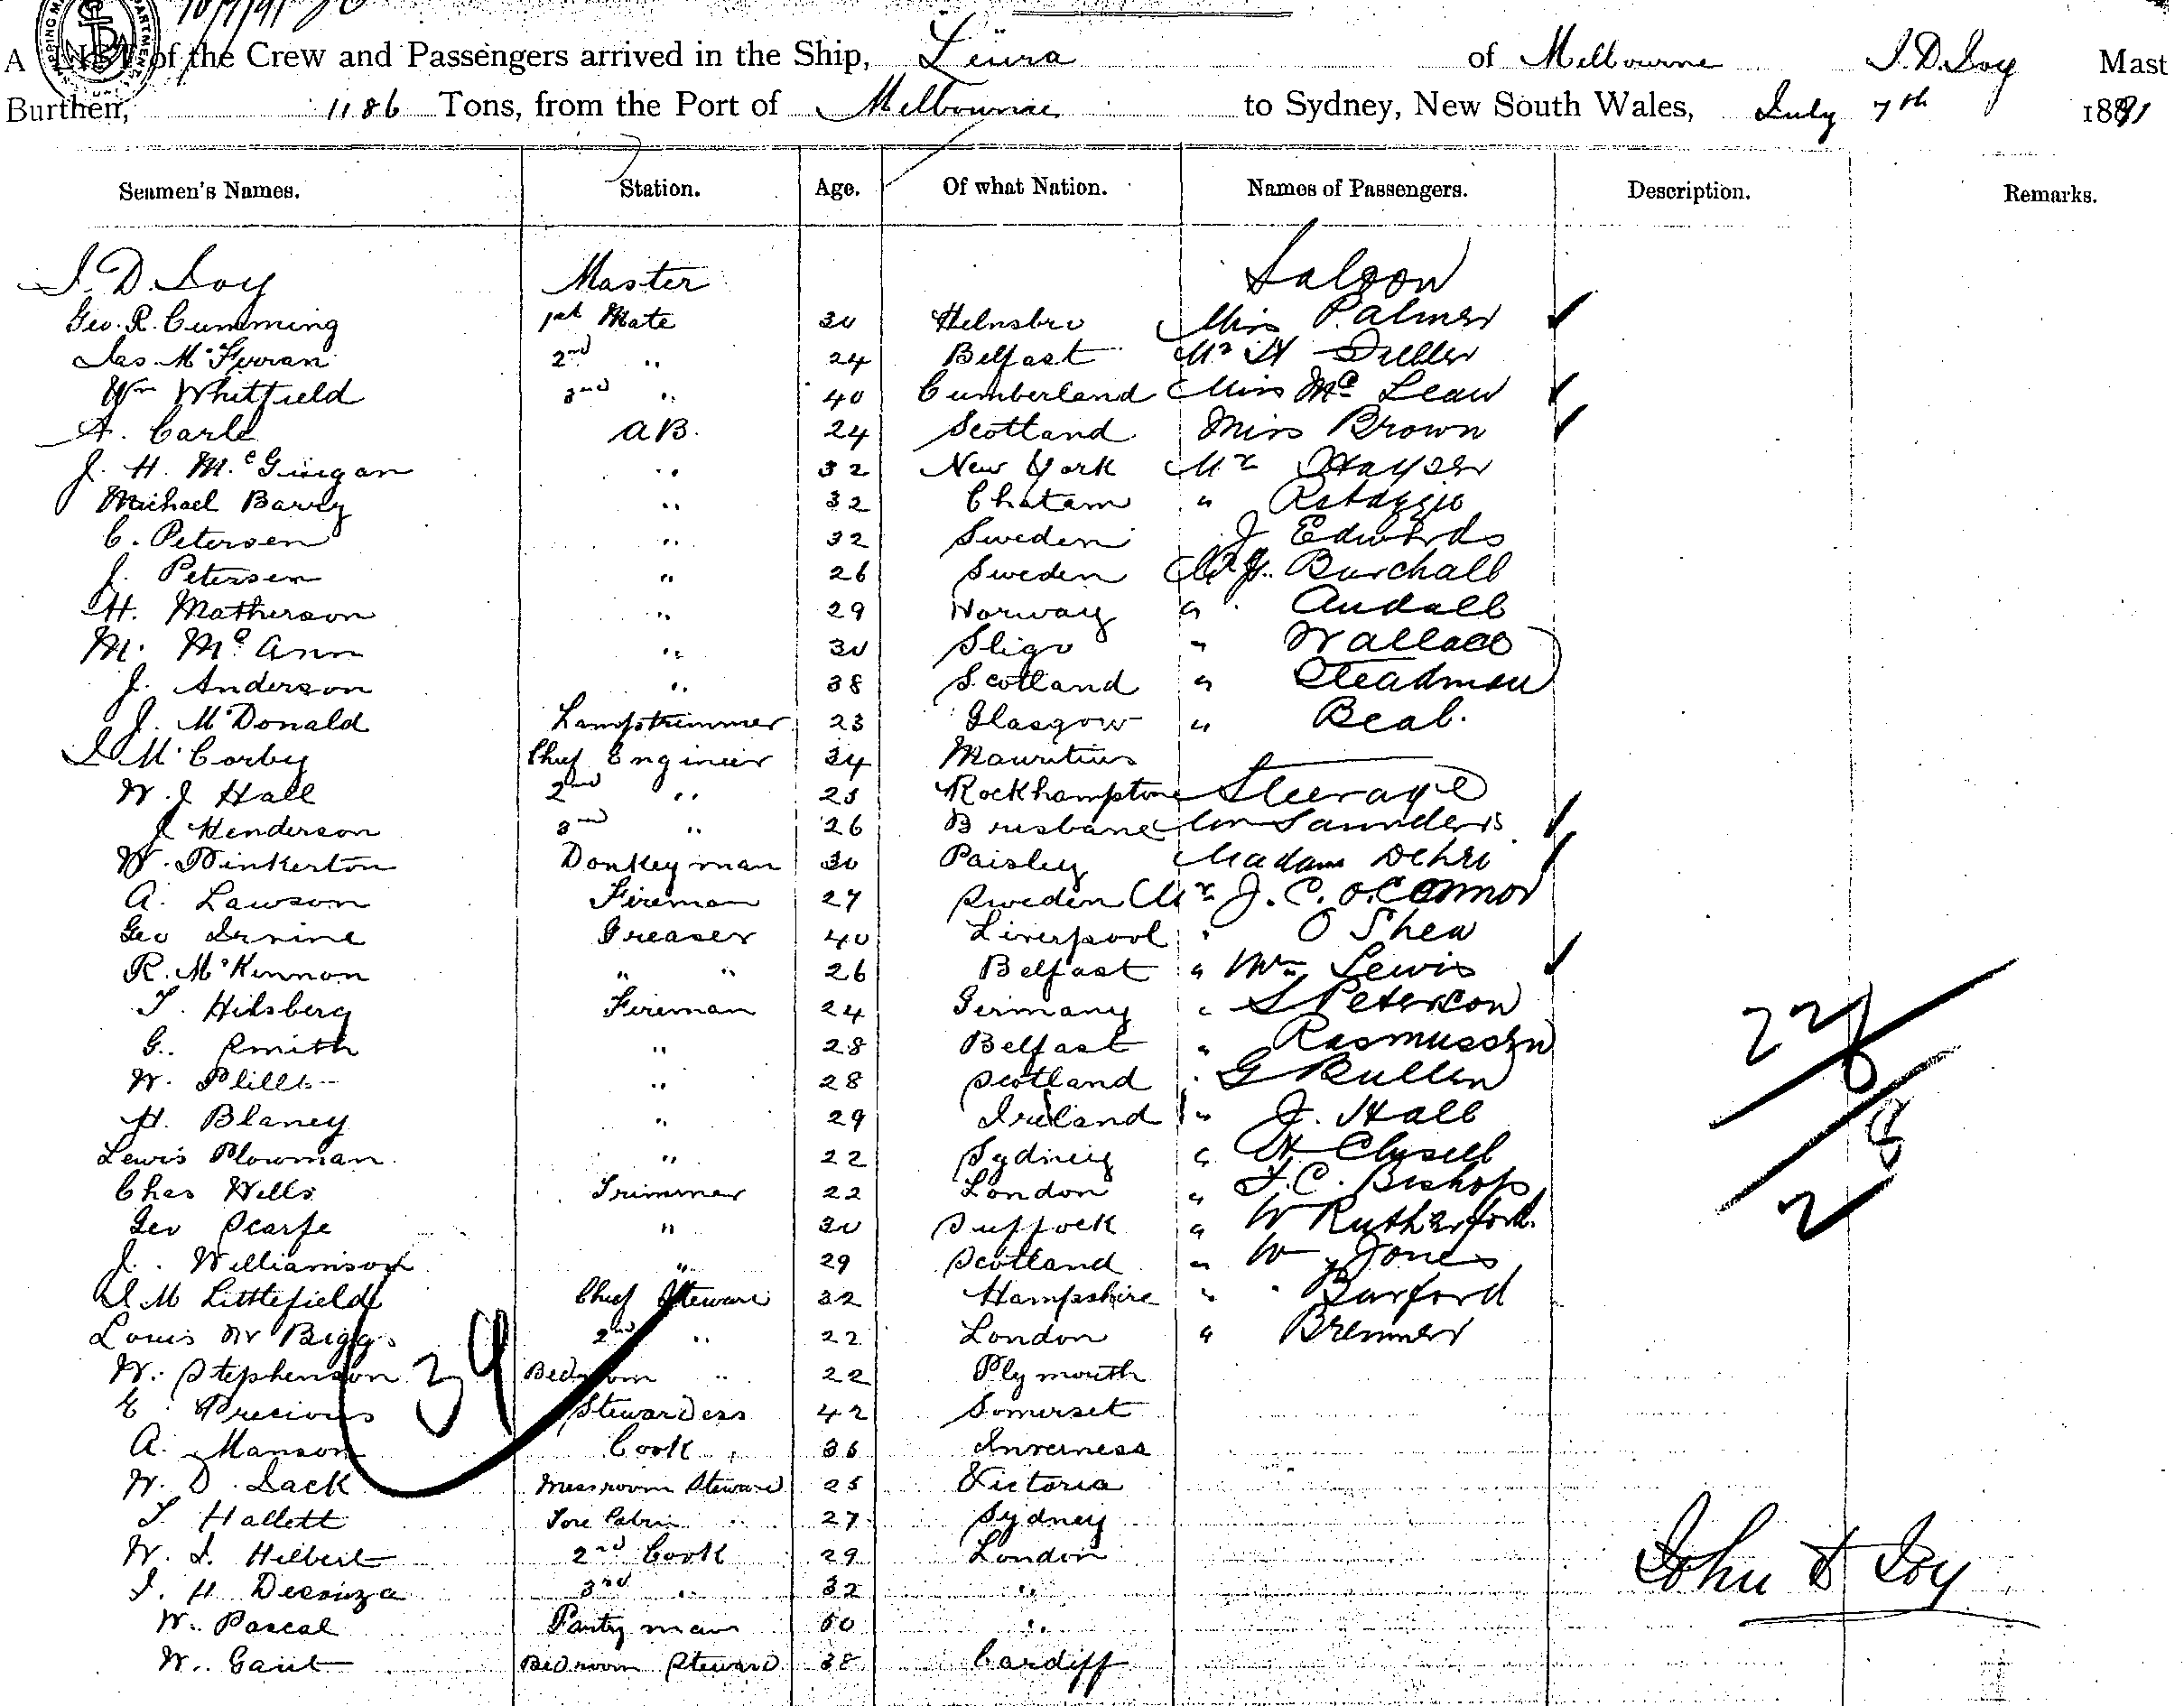 A LIST of the Crew and Passengers arrived in the Ship, Leura of Melbourne J. D. Joy Mast
Burthen, 1186 Tons, from the Port of Melbourne to Sydney, New South Wales, July 7th 1891
Seamen's Names. Station. Age. Of what Nation. Names of Passengers. Description. Remarks.
J. D. Joy Master Saloon
Geo. R. Cumming 1st Mate 30 Helnsbro Miss Palmer
Jas. McFerran 2nd " 24 Belfast Mr H
Wm Whitfield 3rd " 40 Cumberland Miss McLean
A. Carle AB. 24 Scotland Miss Brown
J. H. McGuigan " 32 New York Mr Thayer
Michael Barry " 32 Chatam "
C. Petersen " 32 Sweden J Edwards
J. Petersen " 26 Sweden Burchall
H. Matherson " 29 Norway " Andall
M. McAnn " 30 Sligo " Wallace
J. Anderson " 38 Scotland " Steadman
J. McDonald Lamptrimmer 23 Glasgow " Beal.
McCorby Chief Engineer 34 Mauritius
W. J Hall 2nd " 25 Rockhampton Steerage
J Henderson 3rd " 26 Brisbane Saunders
W. Pinkerton Donkeyman 30 Paisley Madam Dehri
A. Lawson Fireman 27 Sweden Mr J. C. O'Connor
Geo Irvine Greaser 40 Liverpool " O Shea
R. McKinnon " " 26 Belfast " Mrs Lewis
T. Hilsberg Fireman 24 Germany " S Peterson
G. Smith " 28 Belfast " Rasmussen
W. " 28 Scotland " G Bullen
H. Blaney " 29 Ireland " J. Hall
Lewis Plowman " 22 Sydney " H
Chas Wells Trimmer 22 London " F. C. Bishop
Geo Scarfe " 30 Suffock " W Rutherford.
J. Williamson " 29 Scotland " W Jones
M Littlefield Chief Steward 32 Hampshire " Burford
Louis W Biggs 2nd " 22 London " Bremner
W. Stephenson Bedroom " 22 Plymouth
E. Precious Stewardess 42 Somerset
A. Manson Cook 36 Inverness
W. D. Lack Messroom Steward 25 Victoria
T. Hallett Fore Cabin " 27 Sydney
W. J. Hilbert 2nd Cook 29 London
J. H Desouza 3rd " 32 "
W. Pascal Pantry man 50 "
W. Gaut Bedroom Steward 38 Cardiff
39
John D Joy